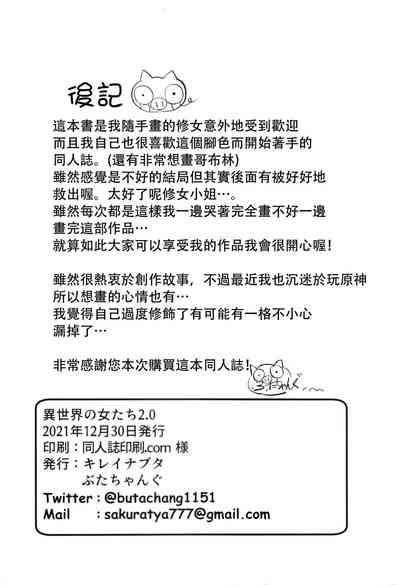 後記
這本書是我隨手畫的修女意外地受到歡迎
而且我自己也很喜歡這個腳色而開始著手的
同人誌。(還有非常想畫哥布林)
雖然感覺是不好的結局但其實後面有被好好地
救出喔。太好了呢修女小姐…。
雖然每次都是這樣我一邊哭著完全畫不好一邊
畫完這部作品…
就算如此大家可以享受我的作品我會很開心喔!
雖然很熱衷於創作故事，不過最近我也沉迷於玩原神
所以想畫的心情也有…
我覺得自己過度修飾了有可能有一格不小心
漏掉了…
非常感謝您本次購買這本同人誌!
ぶたちゃんぐ
異世界の女たち2.0
2021年12月30日発行
印刷：同人誌印刷.com 様
発行：キレイナブタ
ぶたちゃんぐ
Twitter : @butachang1151
Mail : sakuratya777@gmail.com